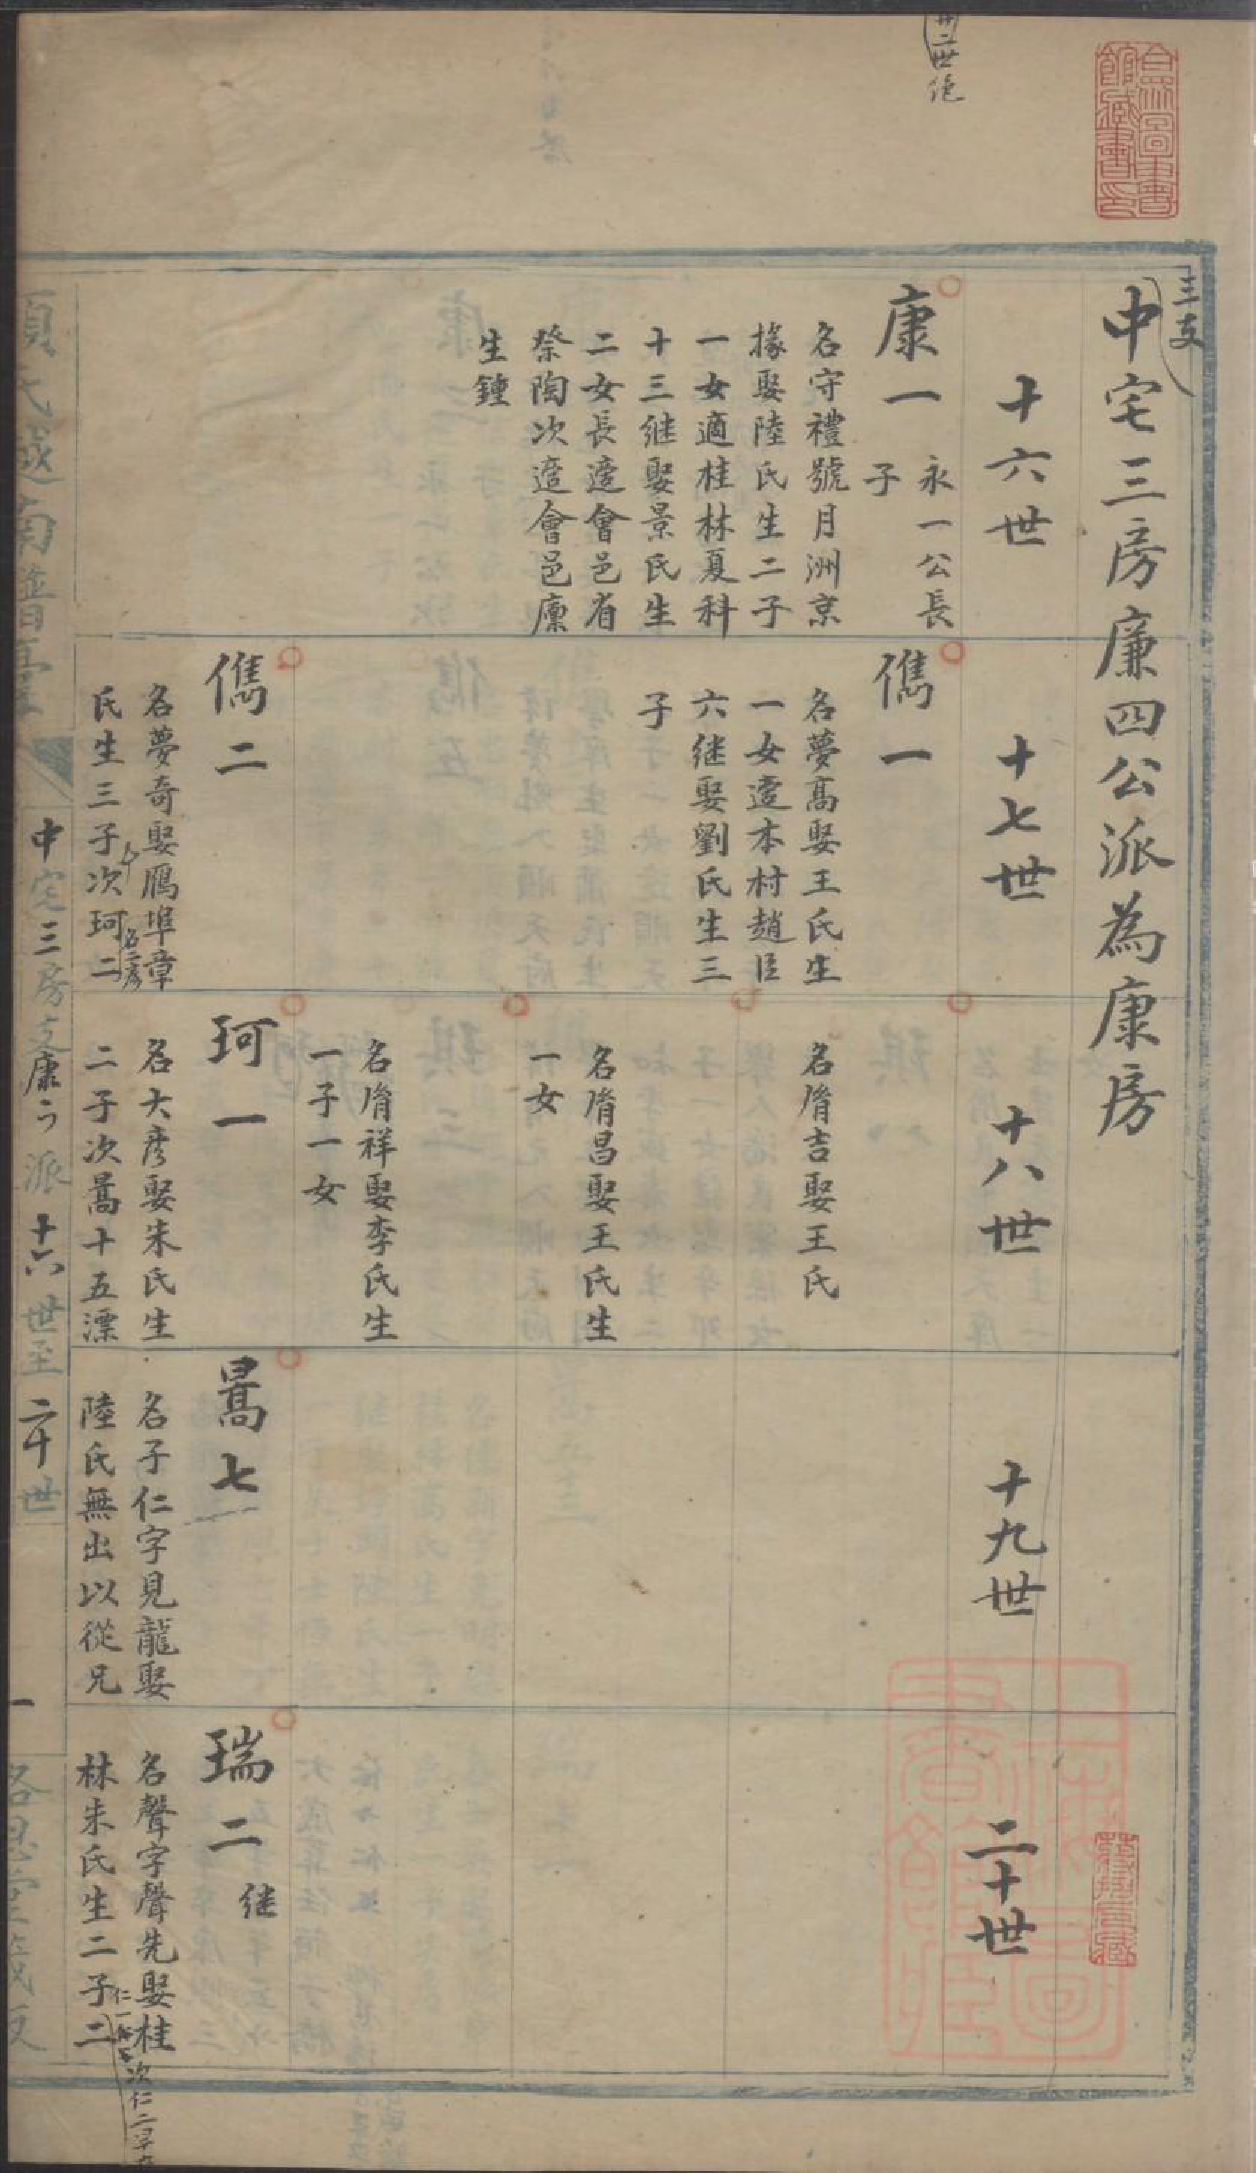 廿二世绝
三支
中宅三房廉四公派為康房
十六世
康一
永一公長
子
名守禮號月洲京
掾娶陸氏生二子
一女適桂林夏科
十三继娶景氏生
二女長適會邑省
祭陶次適會邑廩
生鍾
十七世
儁一
名夢髙娶王氏生
一女適本村趙臣
六继娶劉氏生三
子
儁二
名夢奇娶鴈埠章
氏生三子次珂二
十八世
名脩吉娶王氏
名脩昌娶王氏生
一女
名脩祥娶李氏生
一子一女
珂一
名大彦娶朱氏生
二子次暠十五漂
十九世
暠七
名子仁字見龍娶
陸氏無出以從兄
二十世
瑞二 继
名聲字聲先娶桂
林朱氏生二子二
次仁二早
項氏越南譜
中宅三房支康一派十六世至二十世
一